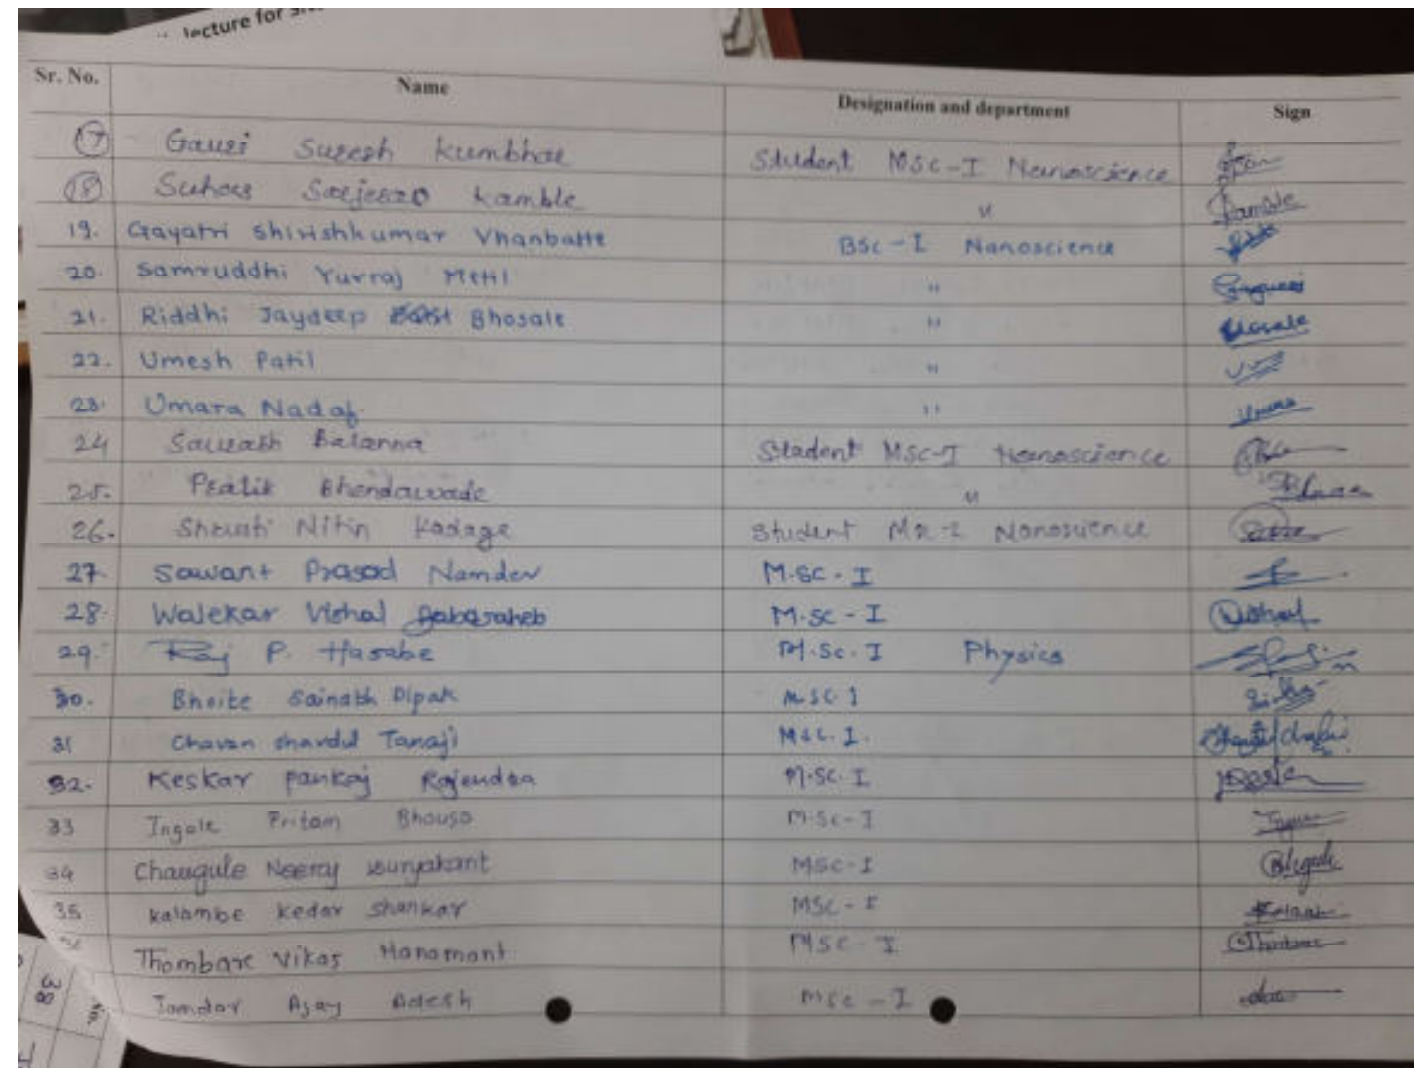 lecture for
Sr. No. Name Designation and department Sign
17 Gauri Suresh Kumbhar Student MSc-I Nanoscience
18 Suhas Sarjerao Kamble " Kamble
19. Gayatri Shirishkumar Vhanbatte BSc-I Nanoscience
20. Samruddhi Yuvraj Metil "
21. Riddhi Jaydeep Bhosale " Bhosale
22. Umesh Patil "
23. Umara Nadaf. "
24 Saurabh Balanna Student MSc-I Nanoscience
25. Pratik Bhendawade "
26. Shruti Nitin Kadage Student MSc-I Nanoscience
27. Sawant Prasad Namdev M.SC.-I
28. Walekar Vishal Babasaheb M.SC-I
29. Raj P. Hasabe M.Sc.I Physics
30. Bhoite Sainath Dipak MSC I
31 Chavan Shardul Tanaji M.Sc.I.
32. Keskar Pankaj Rajendra M.SC.I
33 Ingale Pritam Bhouso M.Sc-I
34 Chaugule Neeraj Suryakant MSC-I
35 Kalambe Kedar Shankar MSC-I
Thombare Vikas Hanamant MSC-I
Jamdar Ajay Adesh MSc-I
38
No.